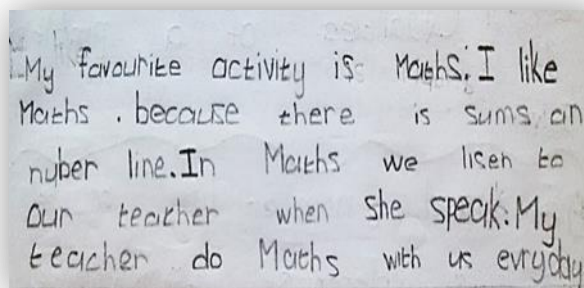 My favourite activity is Maths. I like
Maths . because there is sums on
nuber line. In Maths we lisen to
our teacher when she speak. My
teacher do Maths with us evryday